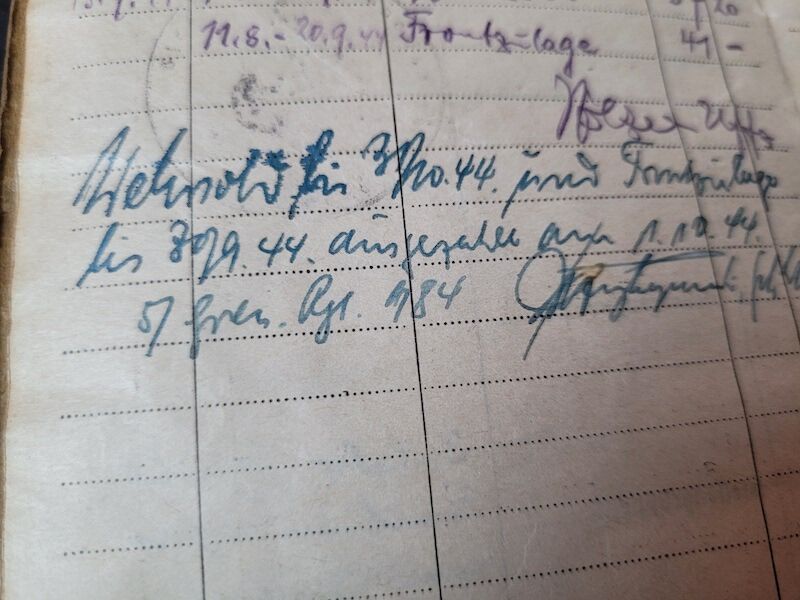 11.8. - 20.9.44 Frontzulage 41 -
Wehrsold bis 31/10.44. und Frontzulage
bis 30/9.44. ausgezahlt am 1.10.44.
5/ Gren. Rgt. 984